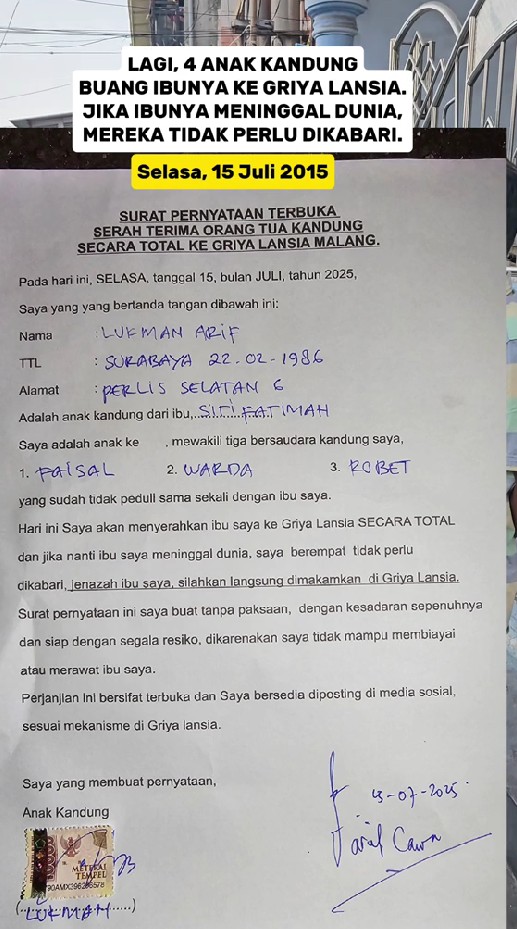 LAGI, 4 ANAK KANDUNG
BUANG IBUNYA KE GRIYA LANSIA.
JIKA IBUNYA MENINGGAL DUNIA,
MEREKA TIDAK PERLU DIKABARI.
Selasa, 15 Juli 2015
SURAT PERNYATAAN TERBUKA
SERAH TERIMA ORANG TUA KANDUNG
SECARA TOTAL KE GRIYA LANSIA MALANG.
Pada hari ini, SELASA, tanggal 15, bulan JULI, tahun 2025,
Saya yang yang bertanda tangan dibawah ini:
Nama : LUKMAN ARIF
TTL : SURABAYA 22-02-1986
Alamat : PERLIS SELATAN 6
Adalah anak kandung dari ibu, SITI FATIMAH
Saya adalah anak ke , mewakili tiga bersaudara kandung saya,
1. FAISAL 2. WARDA 3. ROBET
yang sudah tidak peduli sama sekali dengan ibu saya.
Hari ini Saya akan menyerahkan ibu saya ke Griya Lansia SECARA TOTAL
dan jika nanti ibu saya meninggal dunia, saya berempat tidak perlu
dikabari, jenazah ibu saya, silahkan langsung dimakamkan di Griya Lansia.
Surat pernyataan ini saya buat tanpa paksaan, dengan kesadaran sepenuhnya
dan siap dengan segala resiko, dikarenakan saya tidak mampu membiayai
atau merawat ibu saya.
Perjanjian Ini bersifat terbuka dan Saya bersedia diposting di media sosial,
sesuai mekanisme di Griya lansia.
Saya yang membuat pernyataan,
Anak Kandung
METERAI
TEMPEL
(LUKMAN)
-07-2025